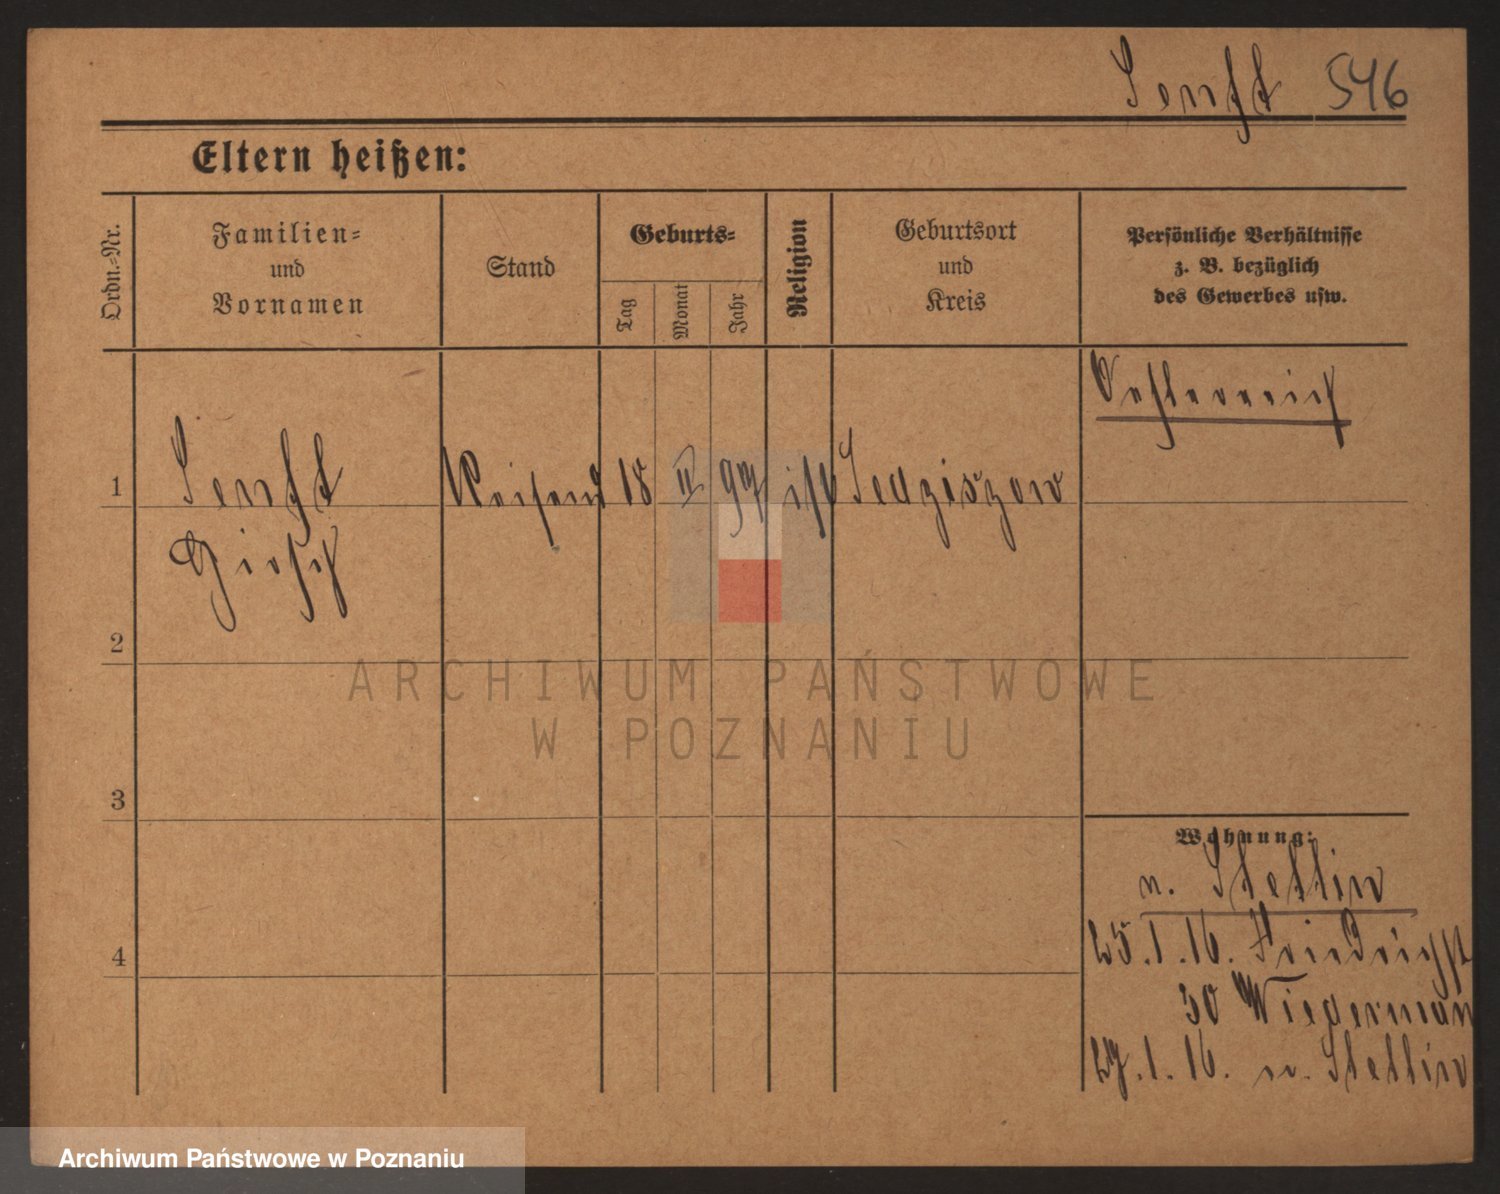 Senft 546
Eltern heißen:
Ordn.-Nr.
Familien- und Vornamen
Stand
Geburts-
Tag
Monat
Jahr
Religion
Geburtsort und Kreis
Persönliche Verhältnisse
z. B. bezüglich
des Gewerbes usw.
Oesterreich
1
Senft
Reisend
18
II
97
isr
Sedziszow
Hirsch
2
3
4
Wohnung:
n. Stettin
25.1.16. Friedrichst
30 Wiegerman
27.1.16. n. Stettin
ARCHIWUM PAŃSTWOWE
W POZNANIU
Archiwum Państwowe w Poznaniu